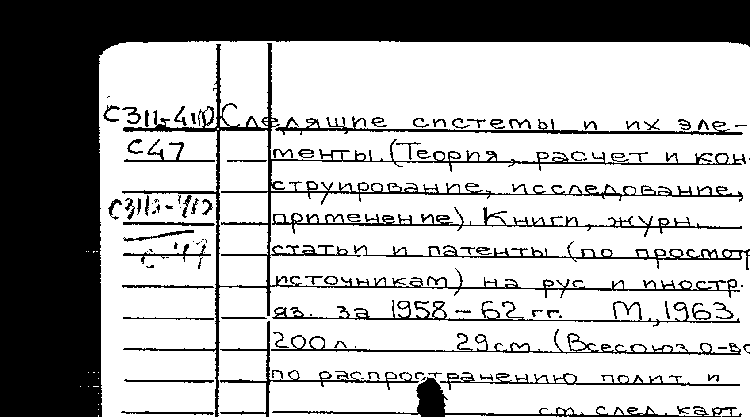 С311-410 Следящие системы и их эле-
С47 менты. (Теория, расчет и кон-
струирование, исследование,
применение). Книги, журн.
статьи и патенты (по просмотр
источникам) на рус и иностр.
яз. за 1958-62 гг. М., 1963.
200 л. 29 см. (Всесоюз о-во
по распространению полит. и
см. след. карт.